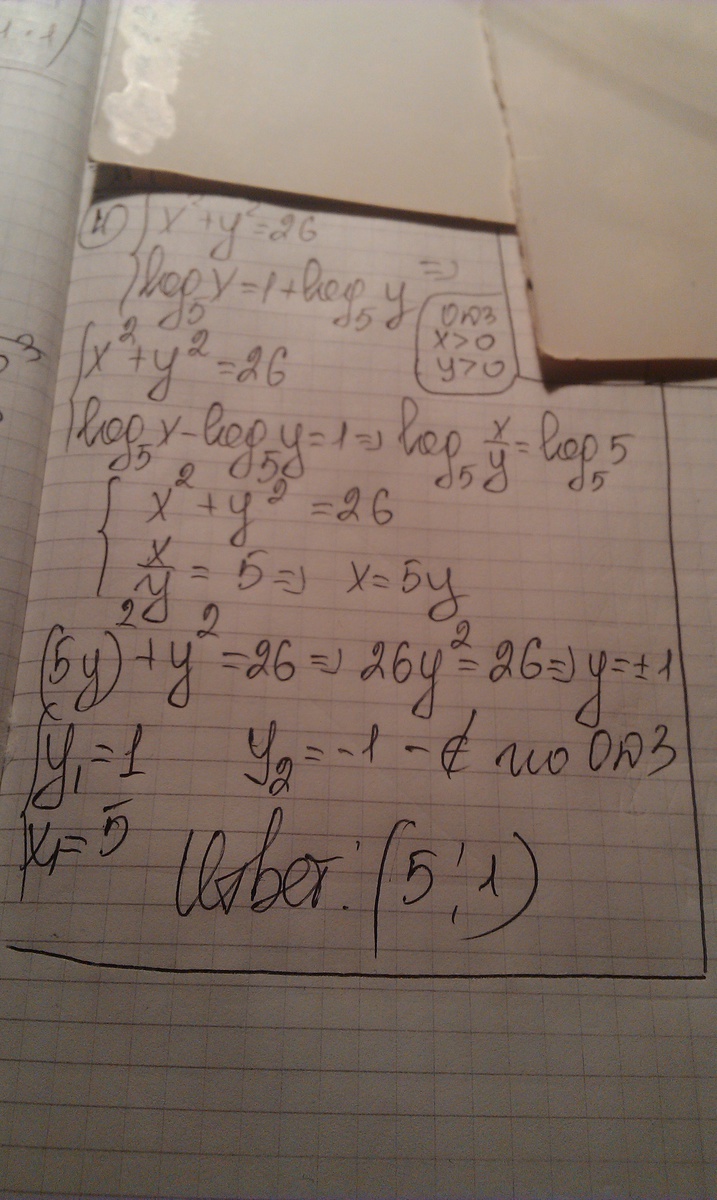 ④ { x² + y² = 26
log₅ x = 1 + log₅ y ⇒
ОДЗ
x > 0
y > 0
{ x² + y² = 26
log₅ x - log₅ y = 1 ⇒ log₅ x/y = log₅ 5
{ x² + y² = 26
x/y = 5 ⇒ x = 5y
(5y)² + y² = 26 ⇒ 26y² = 26 ⇒ y = ±1
{ y₁ = 1 y₂ = -1 - ∉ по ОДЗ
x₁ = 5 Ответ: (5; 1)